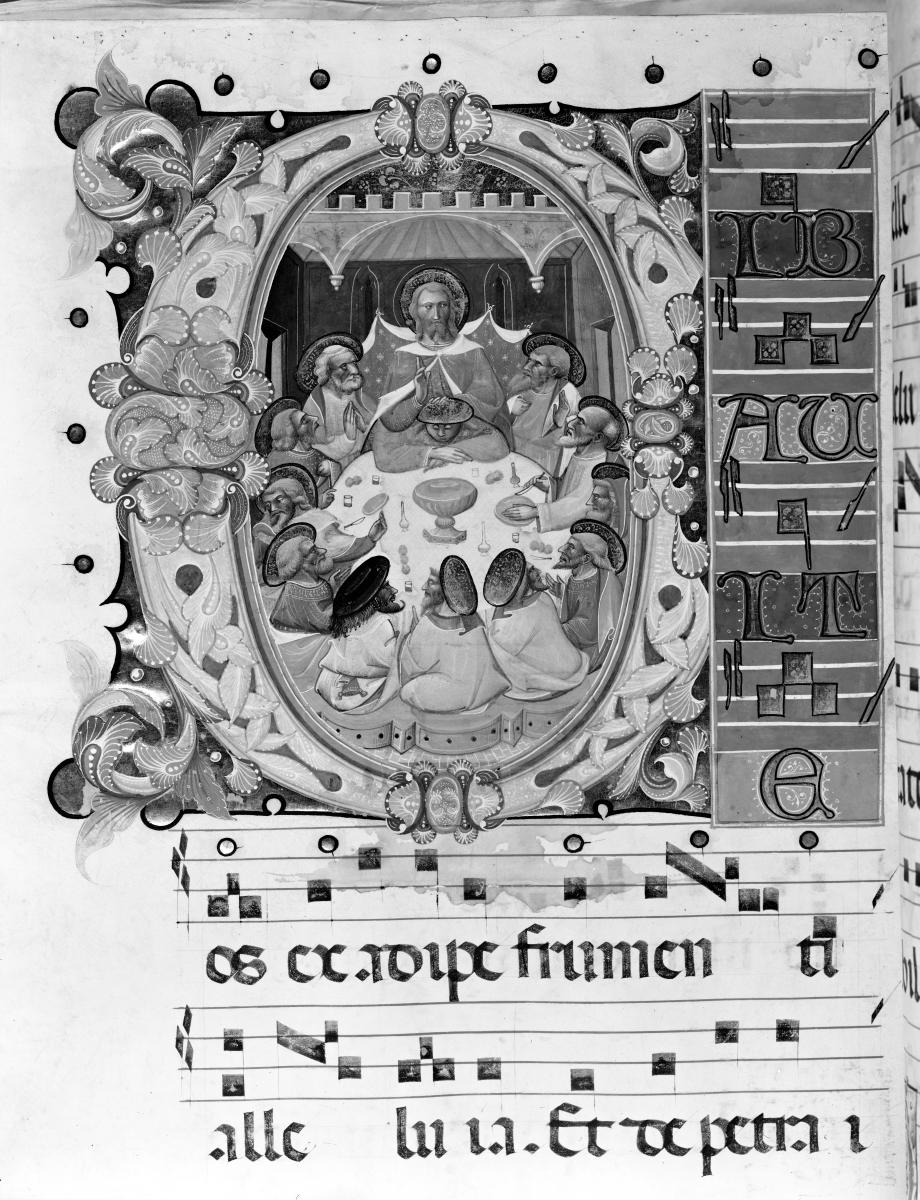 CIB
AU
IT
E
os ex adipe frumen ti
alle lu ia. Et de petra i